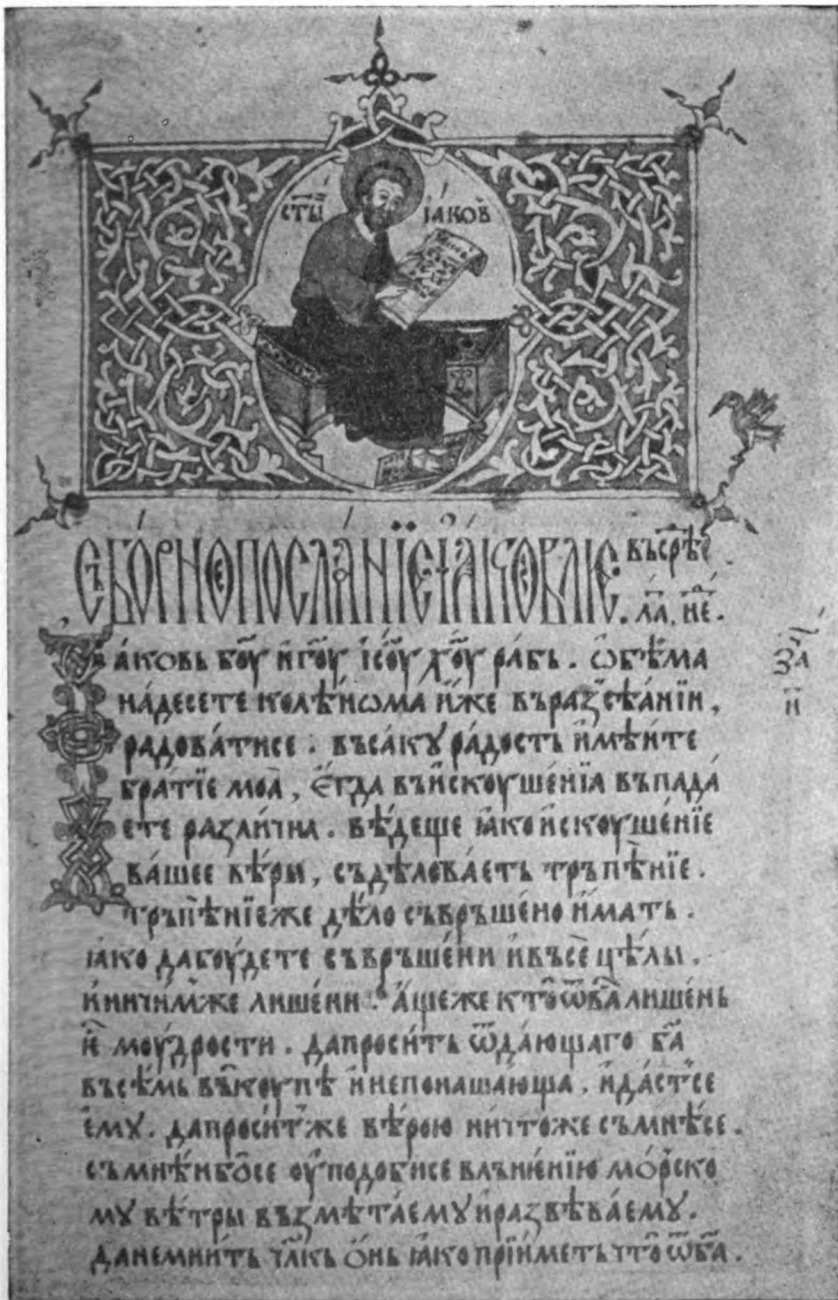 ст҃ы їаковь
съборноепосланїеꙗковліе · въсрѣ
ла, не ·
аковь б҃оу и г҃оу і҃соу х҃оу рабь . ѡбѣма
на десете колѣнѡма иже въ раꙁсѣании ,
радоватисе . въсаку радость имѣите
братїе моꙗ , егда въ искоушенїа въпада
ете раꙁлична . вѣдеще ꙗко искоушенїе
вашее вѣри , съдѣловаеть трьпѣнїе .
трьпѣнїе же дѣло съврьшено имать .
ꙗко да боудете съврьшени и въсе цѣлы .
и ничимже лишени . аще же кто ѿ ва лишень
ѥ моудрости . да просить ѿ дающаго б҃а
въсѣмь въкоупѣ и непонашающа . и даст се
ему . да просит же вѣрою ничтоже съмнѣсе .
съмнѣи бо се оуподобисе влънѣнїю морско
му вѣтры въꙁмѣтаему и раꙁвѣваему .
да не мнить ч҃лкь онь ꙗко прїиметь что ѿ б҃а .